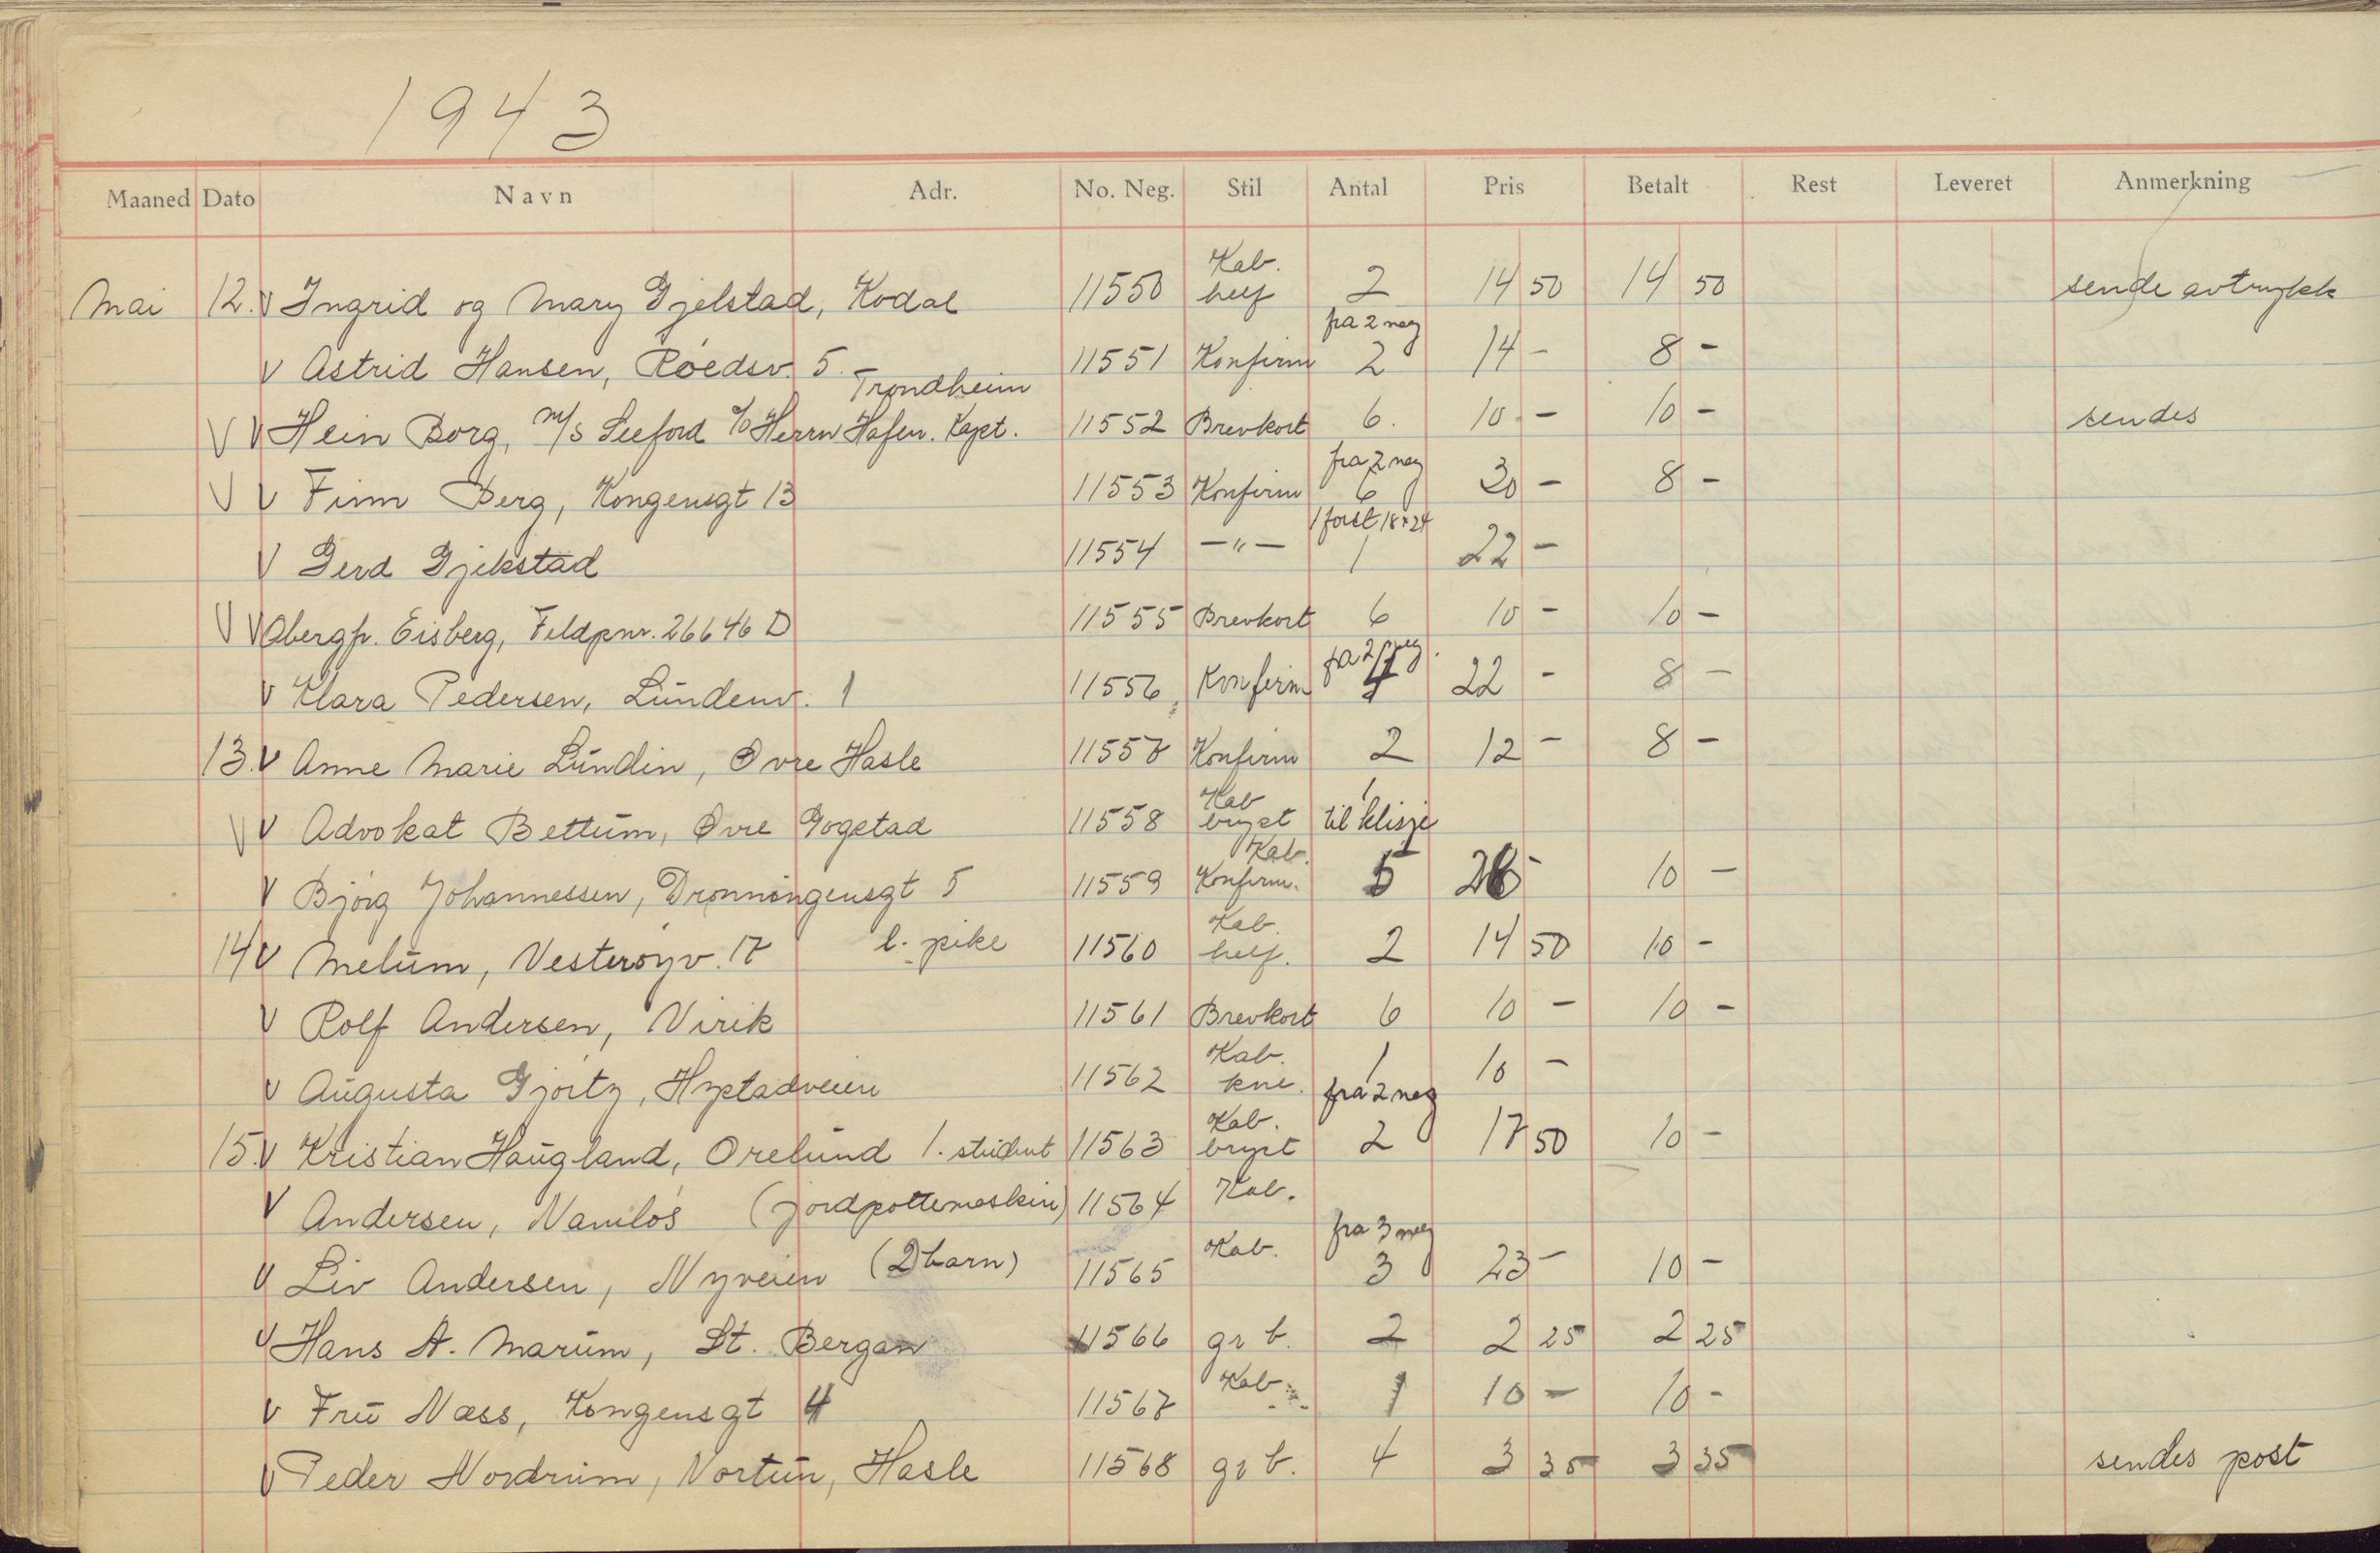 1943
Maaned Dato Navn Adr. No. Neg. Stil Antal Pris Betalt Rest Leveret Anmerkning
Mai 12. V Ingrid og Mary Gjelstad, Kodal 11550 Kab. helf 2 14 50 14 50 sende avtrykk
V Astrid Hansen, Roedsv. 5. 11551 Konfirm fra 2 neg 2 14 - 8 -
Trondheim
V V Hein Borg, M/S Seeford c/o Herrn Hafen. Kapt. 11552 Brevkort 6. 10 - 10 - sendes
V V Finn Berg, Kongensgt 13 11553 Konfirm fra 2 neg 6 30 - 8 -
V Gerd Gjekstad 11554 -"- 1 forst 18x24 1 22 -
V V Obergfr. Eisberg, Feldpnr. 26646 D 11555 Brevkort 6 10 - 10 -
V Klara Pedersen, Lundenv. 1 11556 Konfirm fra 2 neg. 4 22 - 8 -
13. V Anne Marie Lundin, Øvre Hasle 11557 Konfirm 2 12 - 8 -
V V Advokat Bettum, Øvre Gogstad 11558 Kab bryst 1 til klisje
V Bjørg Johannessen, Dronningensgt 5 11559 Kab. Konfirm. 5 10 -
14 V Melum, Vesterøyv. 17 l. pike 11560 Kab. helf. 2 14 50 10 -
V Rolf Andersen, Virik 11561 Brevkort 6 10 - 10 -
V Augusta Gjortz, Hystadveien 11562 Kab. kne. 1 10 -
15. V Kristian Haugland, Orelund 1. student 11563 Kab. bryst fra 2 neg 2 17 50 10 -
V Andersen, Namløs (jordpottemaskin) 11564 Kab.
V Liv Andersen, Nyveien (2 barn) 11565 Kab. fra 3 neg 3 23 - 10 -
V Hans A. Marum, St. Bergan 11566 gr b. 2 2 25 2 25
V Fru Næss, Kongensgt 4 11567 Kab. 1 10 - 10 -
V Peder Nordrum, Nortun, Hasle 11568 gr b. 4 3 35 3 35 sendes post